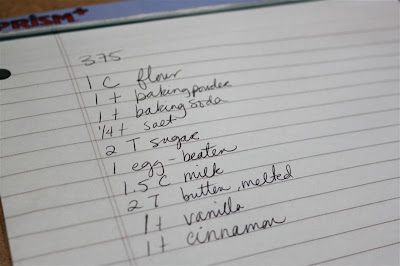 PRISM+
375
1 C flour
1 t baking powder
1 t baking soda
1/4 t salt
2 T sugar
1 egg - beaten
1.5 C milk
2 T butter, melted
1 t vanilla
1 t cinnamon